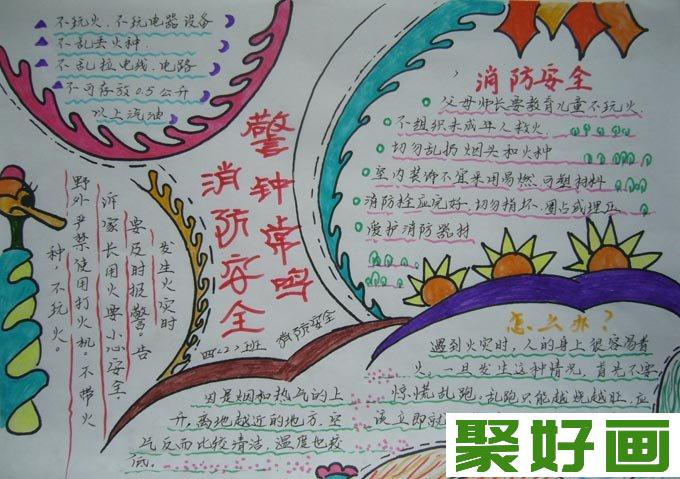 不玩火、不玩电器设备
不乱丢火种、
不乱拉电线、电路
不可存放0.5公升
以上汽油
警钟常鸣
消防安全
消防安全
父母师长要教育儿童不玩火
不组织未成年人救火
切勿乱扔烟头和火种
室内装饰不宜采用易燃、可塑材料
消防栓应完好、切勿损坏、圈占或埋压
爱护消防器材
发生火灾时
要及时报警。告
诉家长用火要小心安全。
野外严禁使用打火机。不带火
种，不玩火。
四（2）班
消防安全
因是烟和热气的上
升。离地越近的地方，空
气反而比较清洁，温度也较
低。
怎么办？
遇到火灾时，人的身上很容易着
火，一旦发生这种情况，首先不要
惊慌乱跑，乱跑只能越烧越旺，应
该立即就
聚好画